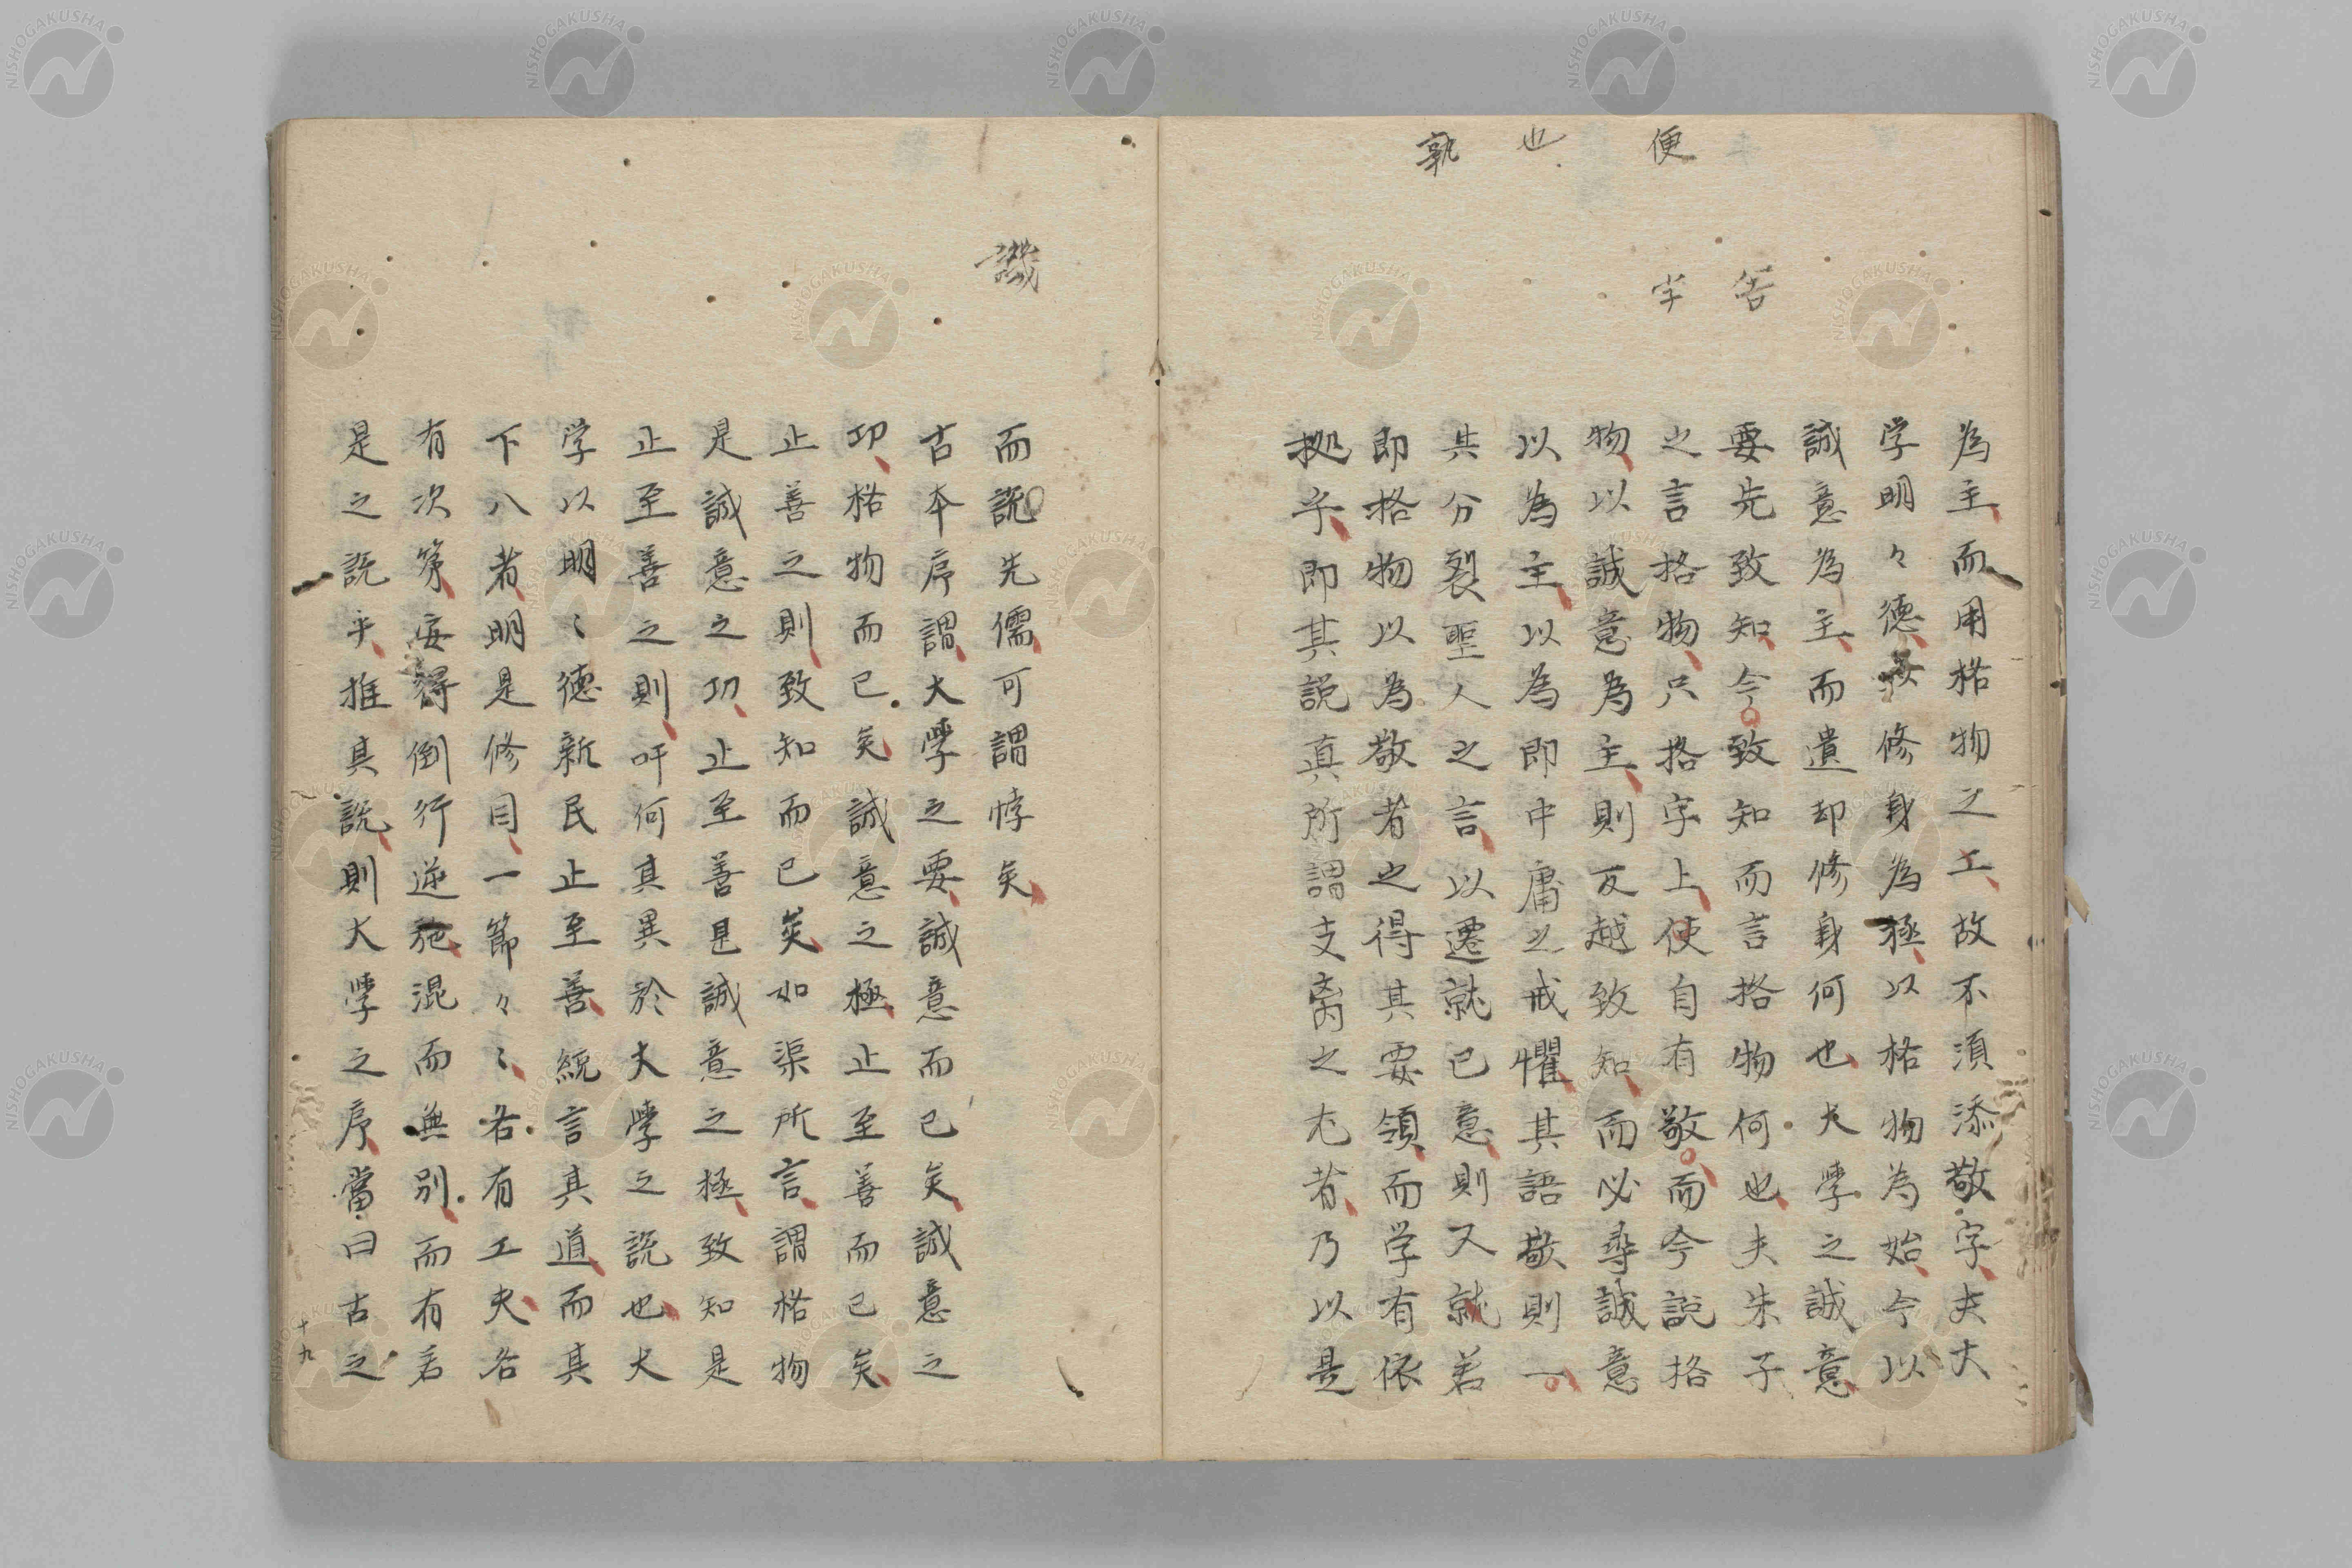 便
也
孰
答
学
為主而用格物之工故不須添敬字夫大
学明々德毎修身為極以格物為始今以
誠意為主而遺却修身何也大學之誠意
要先致知今致知而言格物何也夫朱子
之言格物只格字上使自有敬而今說格
物以誠意為主則反越致知而必尋誠意
以為主以為即中庸之戒懼其語敬則一
共分裂聖人之言以遷就已意則又就若
即格物以為敬者之得其要領而学有依
拠乎即其説真所謂支离之尤者乃以是
譏
而説先儒可謂悖矣
古本序謂大學之要誠意而已矣誠意之
功格物而已矣誠意之極止至善而已矣
止善之則致知而已矣如渠所言謂格物
是誠意之功止至善是誠意之極致知是
止至善之則吁何其異於大學之説也大
学以明〻德新民止至善統言其道而其
下八者明是修目一節々〻各有工夫各
有次第安得倒行逆施混而無別而有若
是之説乎推其説則大學之序當曰古之
十九
NISHOGAKUSHA